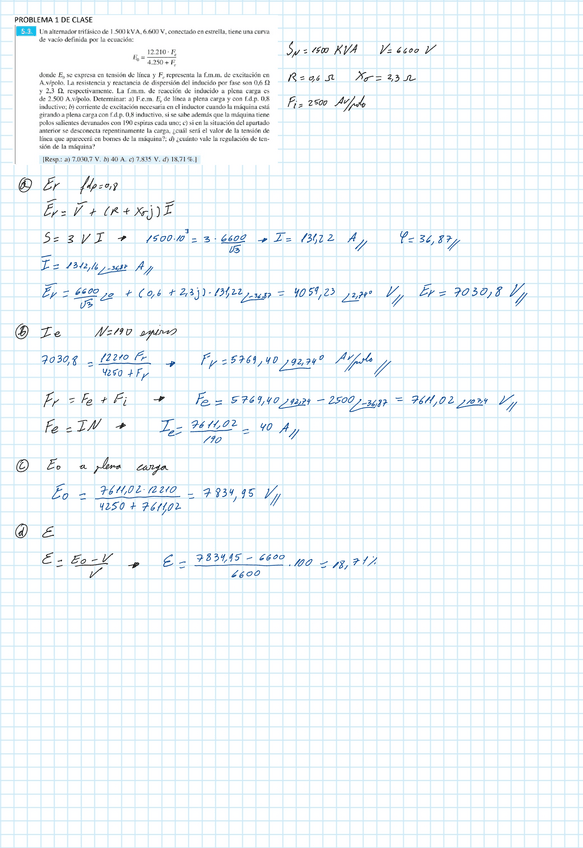 PROBLEMA 1 DE CLASE
5.3. Un alternador trifásico de 1.500 kVA, 6.600 V, conectado en estrella, tiene una curva
de vacío definida por la ecuación:
E₀ = 12.210 · Fₑ / 4.250 + Fₑ
donde E₀ se expresa en tensión de línea y Fₑ representa la f.m.m. de excitación en
A.v/polo. La resistencia y reactancia de dispersión del inducido por fase son 0,6 Ω
y 2,3 Ω, respectivamente. La f.m.m. de reacción de inducido a plena carga es
de 2.500 A.v/polo. Determinar: a) F.e.m. Eᵣ de línea a plena carga y con f.d.p. 0,8
inductivo; b) corriente de excitación necesaria en el inductor cuando la máquina está
girando a plena carga con f.d.p. 0,8 inductivo, si se sabe además que la máquina tiene
polos salientes devanados con 190 espiras cada uno; c) si en la situación del apartado
anterior se desconecta repentinamente la carga, ¿cuál será el valor de la tensión de
línea que aparecerá en bornes de la máquina?; d) ¿cuánto vale la regulación de ten-
sión de la máquina?
[Resp.: a) 7.030,7 V. b) 40 A. c) 7.835 V. d) 18,71 %.]
S_N = 1500 KVA V = 6600 V
R = 0,6 Ω Xσ = 2,3 Ω
Fi = 2500 Av/polo
a) Er fdp=0,8
Er = V + (R + Xσj) I
S = 3 V I → 1500·10³ = 3 · 6600/√3 → I = 131,22 A // φ = 36,87 //
I = 1312,16 ∠-36,87 A //
Er = 6600/√3 ∠0 + (0,6 + 2,3j) · 131,22 ∠-36,87 = 4059,23 ∠2,74° V // Er = 7030,8 V //
b) Ie N=190 espiras
7030,8 = 12210 Fr / 4250 + Fr → Fr = 5769,40 ∠92,74° Av/polo //
Fr = Fe + Fi → Fe = 5769,40 ∠92,74 - 2500 ∠-36,87 = 7611,02 ∠107,4 V //
Fe = IN → Ie = 7611,02 / 190 = 40 A //
c) Eo a plena carga
Eo = 7611,02 · 12210 / 4250 + 7611,02 = 7834,95 V //
d) Ɛ
Ɛ = Eo - V / V → Ɛ = 7834,95 - 6600 / 6600 · 100 = 18,71 %